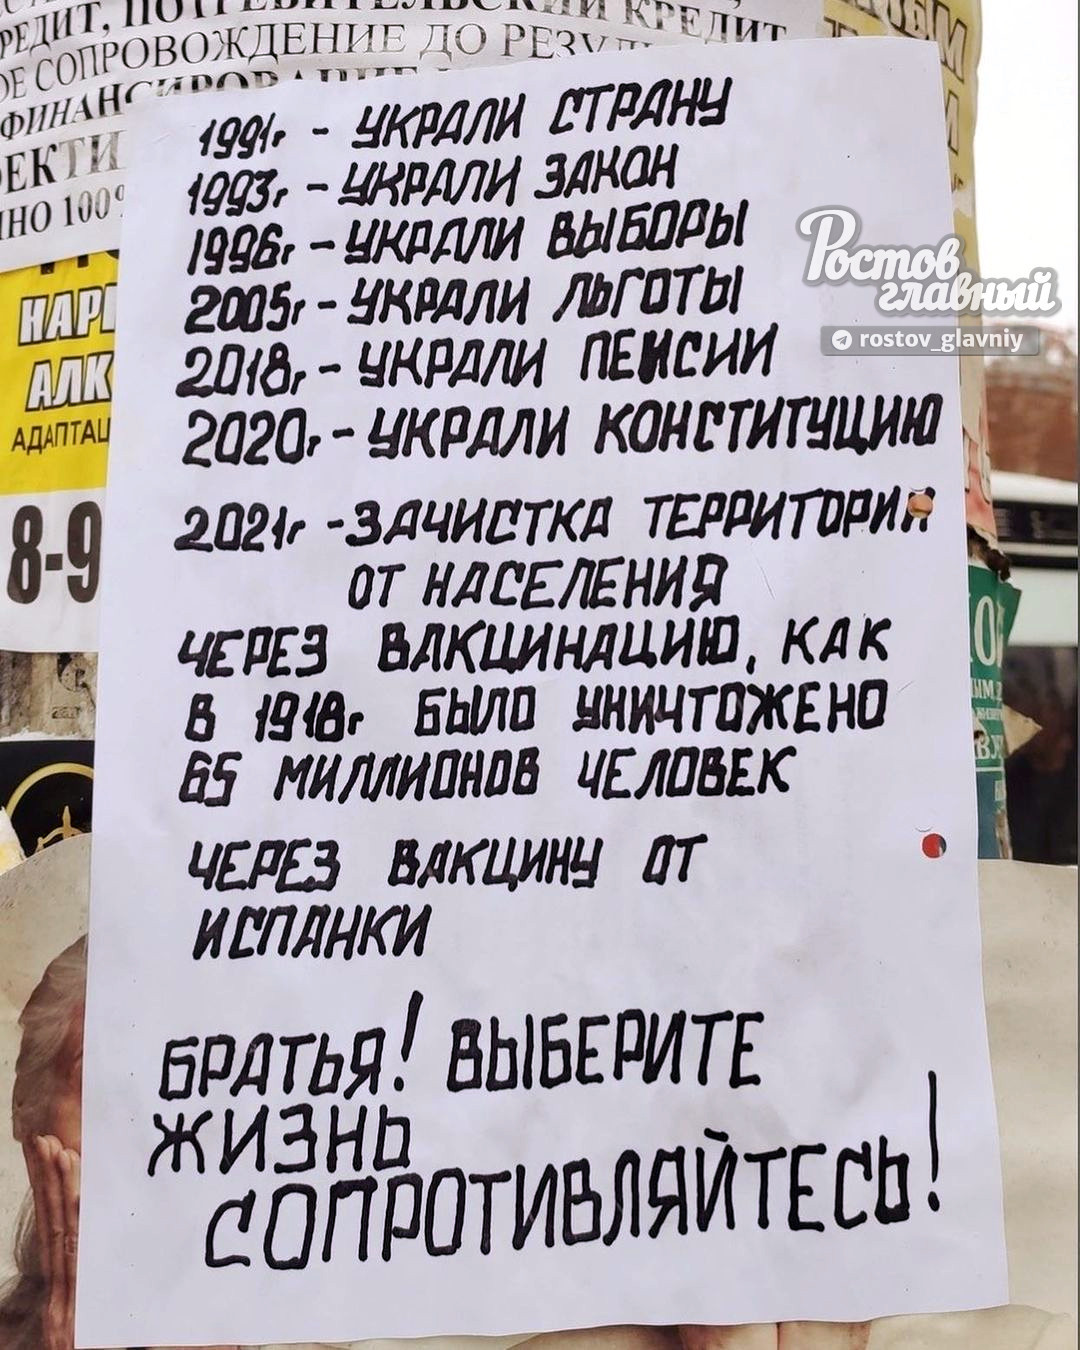 РЕДИТ, ПОТРЕБИТЕЛЬСКИЙ КРЕДИТ
ОЕ СОПРОВОЖДЕНИЕ ДО
ЕКТИ
НО 100%
НАР
АЛК
АДАПТАЦ
8-9
1991г - УКРАЛИ СТРАНУ
1993г - УКРАЛИ ЗАКОН
1996г - УКРАЛИ ВЫБОРЫ
2005г - УКРАЛИ ЛЬГОТЫ
2018г - УКРАЛИ ПЕНСИИ
2020г - УКРАЛИ КОНСТИТУЦИЮ
2021г - ЗАЧИСТКА ТЕРРИТОРИИ
ОТ НАСЕЛЕНИЯ
ЧЕРЕЗ ВАКЦИНАЦИЮ, КАК
В 1918г БЫЛО УНИЧТОЖЕНО
65 МИЛЛИОНОВ ЧЕЛОВЕК
ЧЕРЕЗ ВАКЦИНУ ОТ
ИСПАНКИ
БРАТЬЯ! ВЫБЕРИТЕ
ЖИЗНЬ
СОПРОТИВЛЯЙТЕСЬ!
Ростов
главный
rostov_glavniy